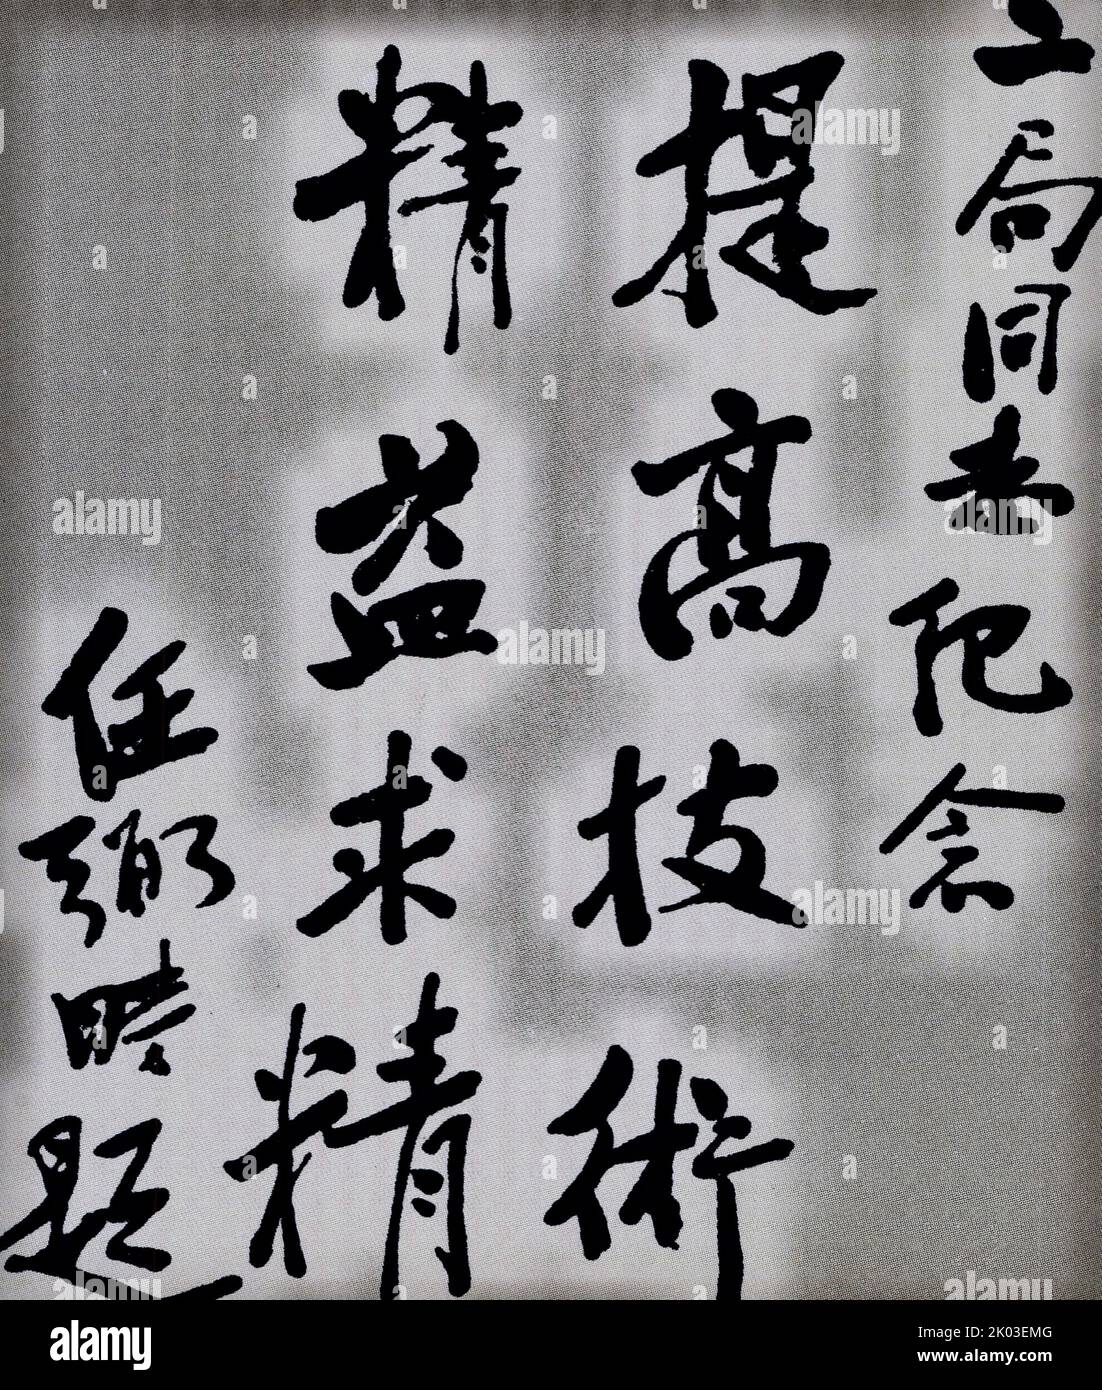 二局同志纪念
提高技術
精益求精
任弼時題
alamy
Image ID: 2K03EMG
www.alamy.com